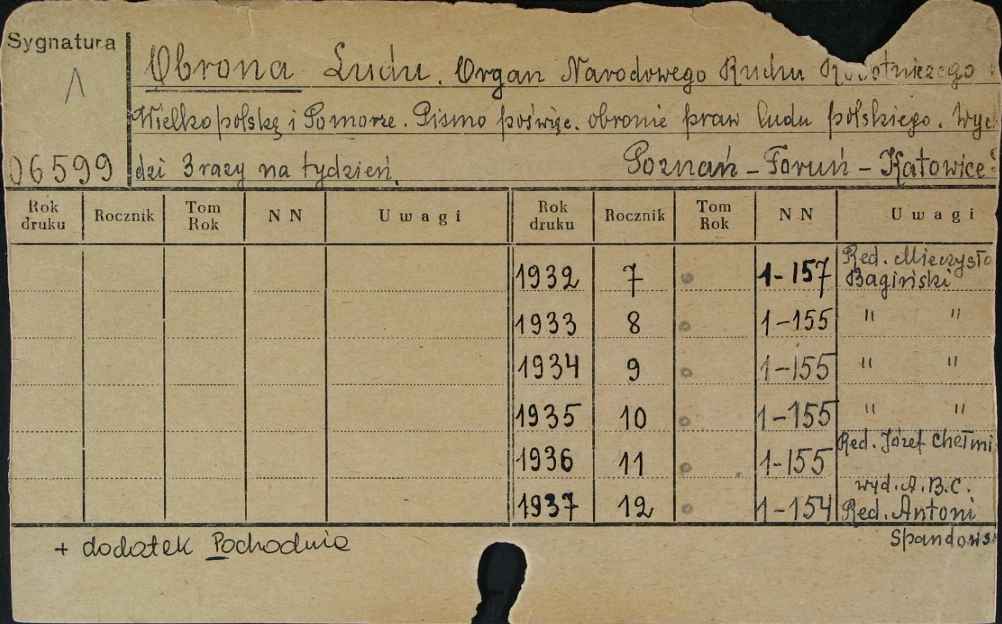 Sygnatura
Λ
06599
Obrona Ludu. Organ Narodowego Ruchu Robotniczego w
Wielkopolskę i Pomorze. Pismo poświęc. obronie praw ludu polskiego. Wyc
dzi 3 razy na tydzień. Poznań - Toruń - Katowice
Rok druku Rocznik Tom Rok NN Uwagi Rok druku Rocznik Tom Rok NN Uwagi
1932 7 1-157 Red. Mieczysło Bagiński
1933 8 1-155 " "
1934 9 1-155 " "
1935 10 1-155 " "
1936 11 1-155 Red. Józef Chełmi
wyd. A.B.C.
1937 12 1-154 Red. Antoni
+ dodatek Pochodnia